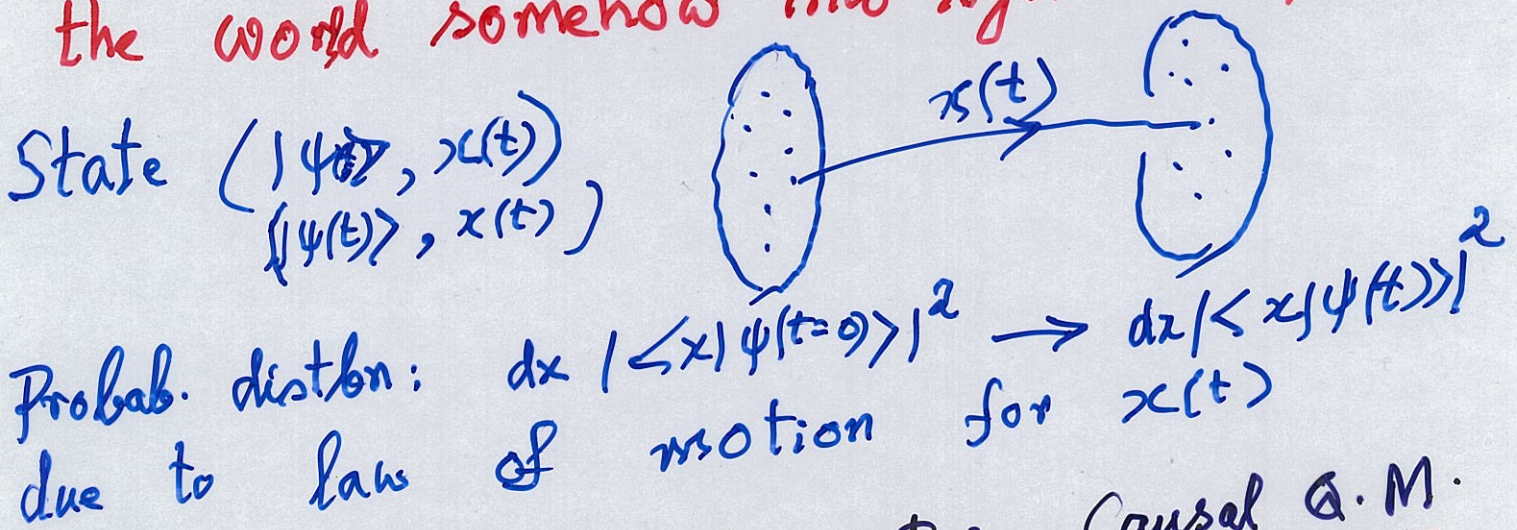 the world somehow into
State (|ψ⟩, x(t))
(|ψ(t)⟩, x(t))
x(t)
Probab. distbn: dx |<x|ψ(t=0)>|² → dx|<x|ψ(t)>|²
due to law of motion for x(t)
Causal Q.M.